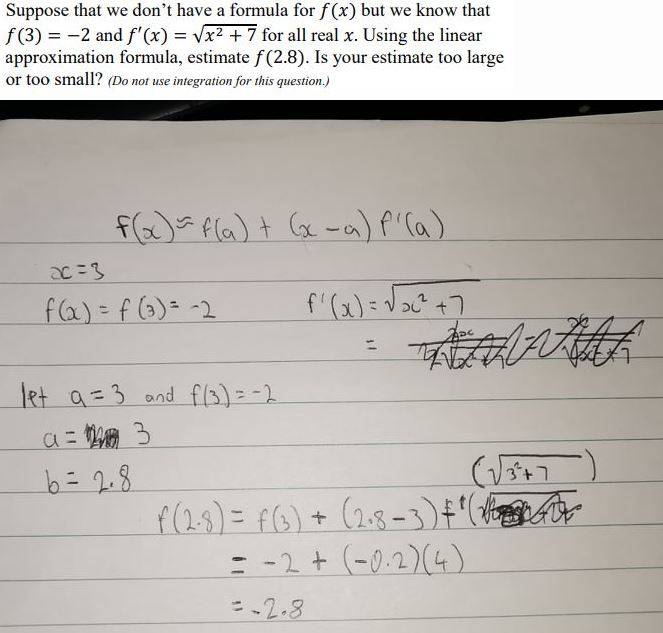 Suppose that we don't have a formula for f(x) but we know that
f(3) = −2 and f′(x) = √(x² + 7) for all real x. Using the linear
approximation formula, estimate f(2.8). Is your estimate too large
or too small? (Do not use integration for this question.)
f(x) ≈ f(a) + (x−a) f'(a)
x=3
f(x) = f(3) = -2 f'(x) = √(x² + 7)
=
let a=3 and f(3) = -2
a = 3
b = 2.8
(√(3²+7))
f(2.8) = f(3) + (2.8−3) f'(
= -2 + (-0.2)(4)
= -2.8